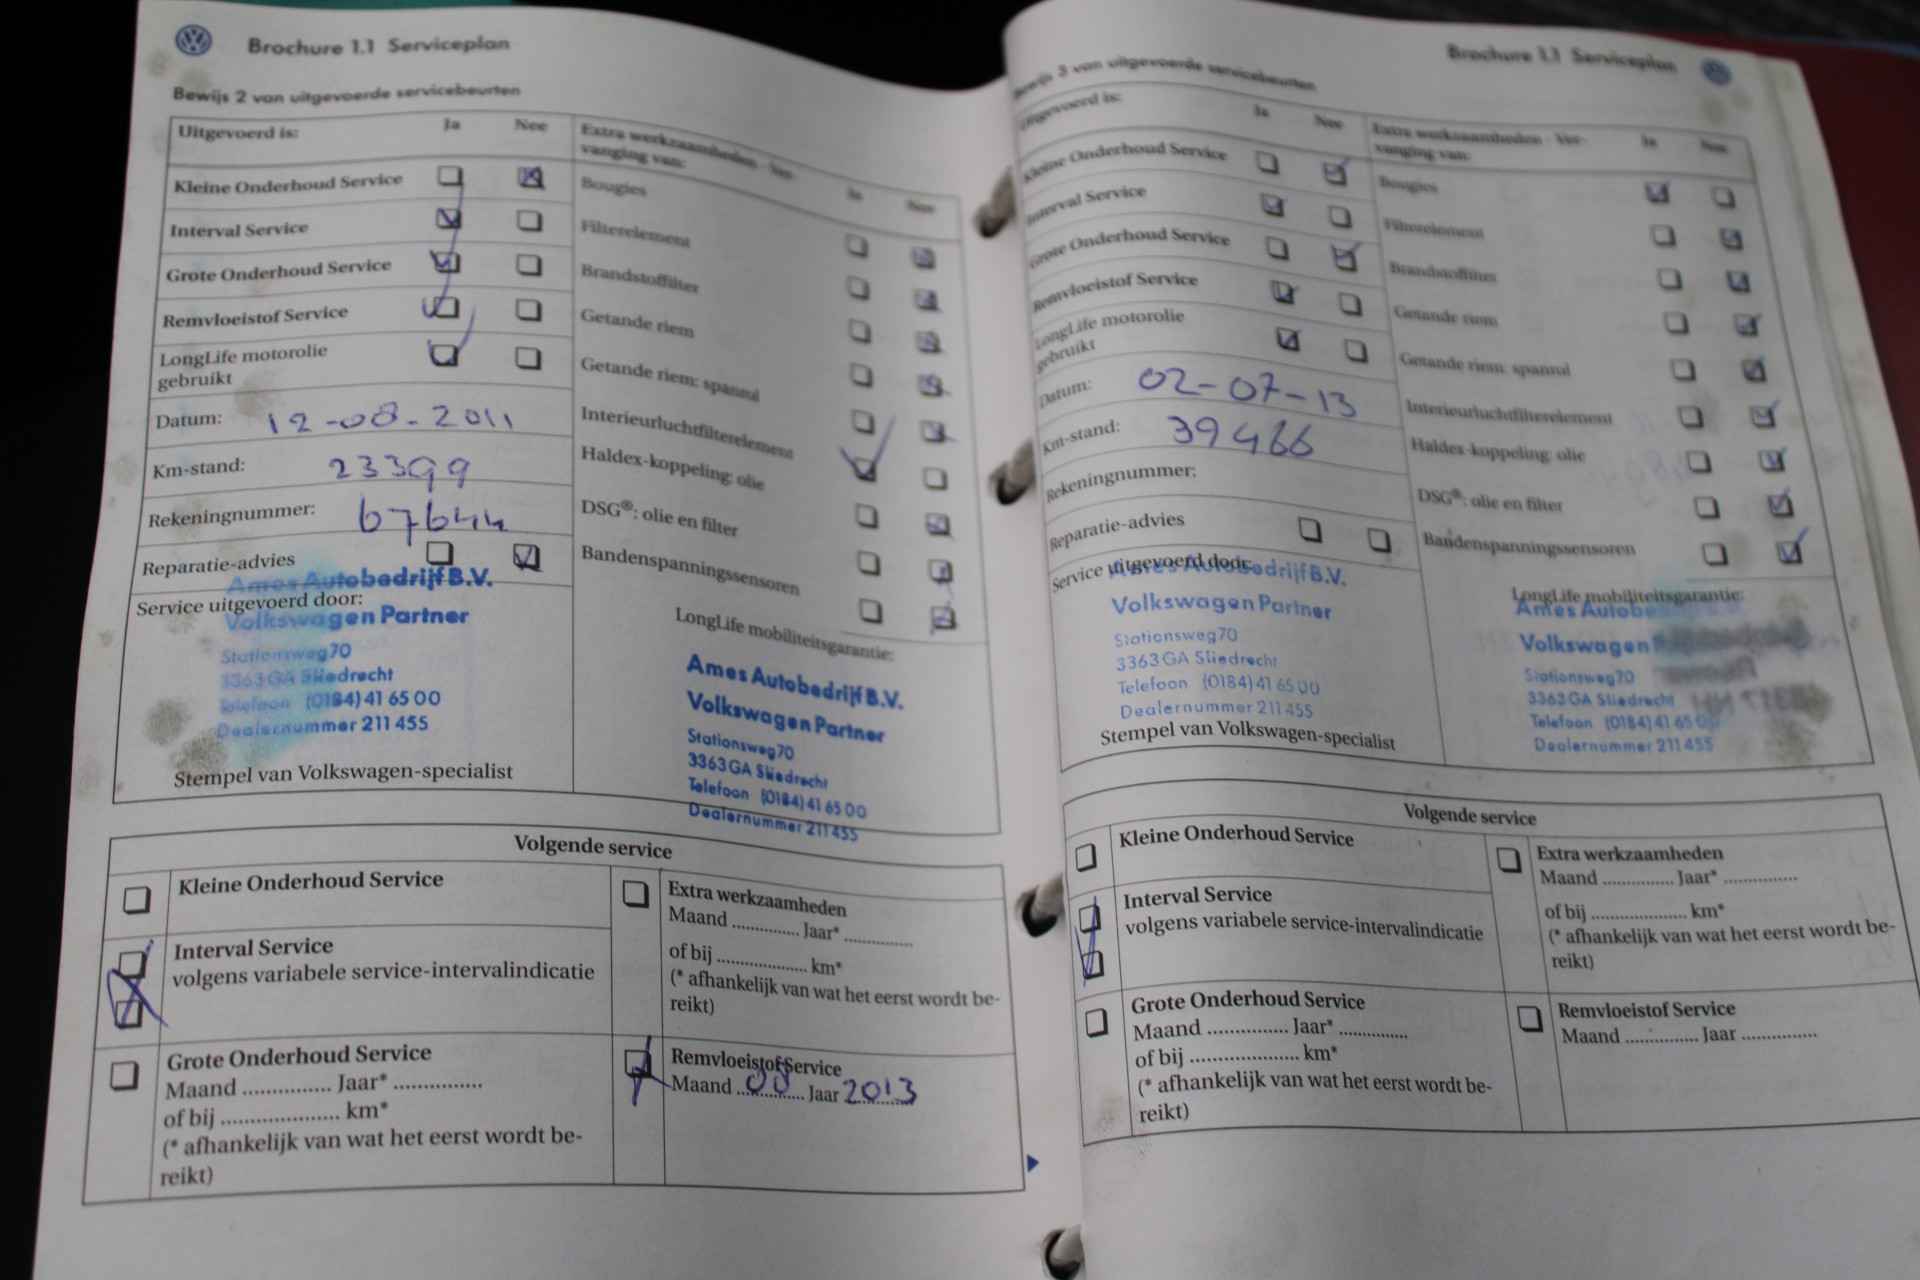 Brochure 1.1 Serviceplan
Bewijs 2 van uitgevoerde servicebeurten
Uitgevoerd is:
Ja
Nee
Kleine Onderhoud Service
Interval Service
Grote Onderhoud Service
Remvloeistof Service
LongLife motorolie
gebruikt
Datum: 12-08-2011
Km-stand: 23399
Rekeningnummer: 67644
Reparatie-advies
Service uitgevoerd door:
Ames Autobedrijf B.V.
Volkswagen Partner
Stationsweg 70
3363 GA Sliedrecht
Telefoon (0184) 41 65 00
Dealernummer 211 455
Stempel van Volkswagen-specialist
Extra werkzaamheden - Ver-
vanging van:
Ja
Nee
Bougies
Filterelement
Brandstoffilter
Getande riem
Getande riem: spanrol
Interieurluchtfilterelement
Haldex-koppeling: olie
DSG®: olie en filter
Bandenspanningssensoren
LongLife mobiliteitsgarantie:
Ames Autobedrijf B.V.
Volkswagen Partner
Stationsweg 70
3363 GA Sliedrecht
Telefoon (0184) 41 65 00
Dealernummer 211 455
Volgende service
Kleine Onderhoud Service
Interval Service
volgens variabele service-intervalindicatie
Grote Onderhoud Service
Maand ............... Jaar* ...............
of bij .................... km*
(* afhankelijk van wat het eerst wordt be-
reikt)
Extra werkzaamheden
Maand ............... Jaar* ...............
of bij .................... km*
(* afhankelijk van wat het eerst wordt be-
reikt)
Remvloeistof Service
Maand 08 Jaar 2013
Brochure 1.1 Serviceplan
Bewijs 3 van uitgevoerde servicebeurten
Uitgevoerd is:
Ja
Nee
Kleine Onderhoud Service
Interval Service
Grote Onderhoud Service
Remvloeistof Service
LongLife motorolie
gebruikt
Datum: 02-07-13
Km-stand: 39466
Rekeningnummer:
Reparatie-advies
Service uitgevoerd door:
Ames Autobedrijf B.V.
Volkswagen Partner
Stationsweg 70
3363 GA Sliedrecht
Telefoon (0184) 41 65 00
Dealernummer 211 455
Stempel van Volkswagen-specialist
Extra werkzaamheden - Ver-
vanging van:
Ja
Nee
Bougies
Filterelement
Brandstoffilter
Getande riem
Getande riem: spanrol
Interieurluchtfilterelement
Haldex-koppeling: olie
DSG®: olie en filter
Bandenspanningssensoren
LongLife mobiliteitsgarantie:
Ames
Volkswagen
Stationsweg 70
3363 GA Sliedrecht
Telefoon (0184) 41 65 00
Dealernummer 211 455
Volgende service
Kleine Onderhoud Service
Interval Service
volgens variabele service-intervalindicatie
Grote Onderhoud Service
Maand ............... Jaar* ...............
of bij .................... km*
(* afhankelijk van wat het eerst wordt be-
reikt)
Extra werkzaamheden
Maand ............... Jaar* ...............
of bij .................... km*
(* afhankelijk van wat het eerst wordt be-
reikt)
Remvloeistof Service
Maand ............... Jaar ...............